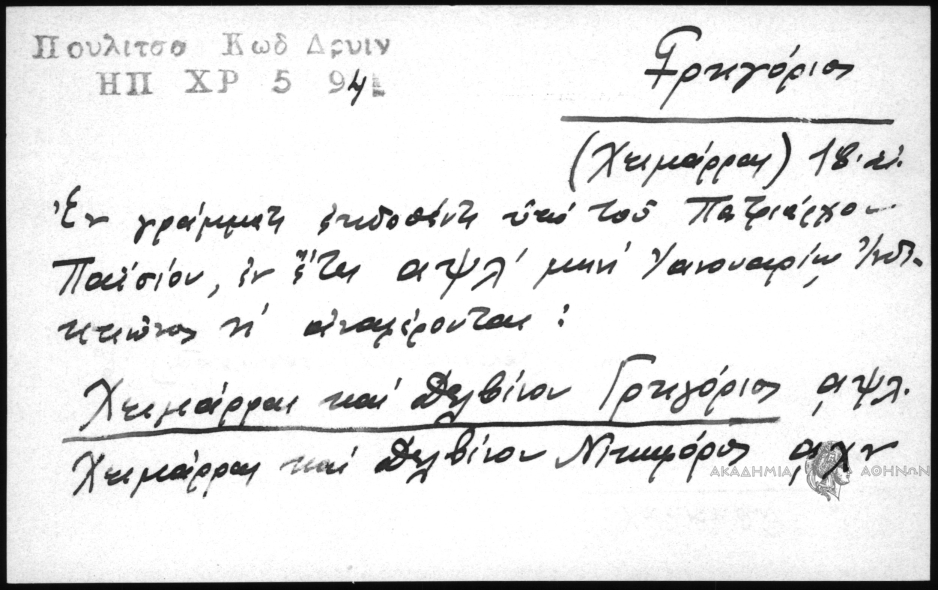 Πουλιτσα Κωδ Δρυιν
ΗΠ ΧΡ 5 94
Γρηγόριος
(Χειμάρρας) 18. αἰ.
Ἐν γράμματι ἐκδοθέντι ὑπὸ τοῦ Πατριάρχου
Παϊσίου, ἐν ἔτει αψλ´ μηνί Ἰανουαρίῳ Ἰνδι-
κτιῶνος η´ ἀναφέρονται :
Χειμάρρας καί Δελβίνου Γρηγόριος αψλ.
Χειμάρρας καί Δελβίνου Νικηφόρος αχν
ΑΚΑΔΗΜΙΑ ΑΘΗΝΩΝ